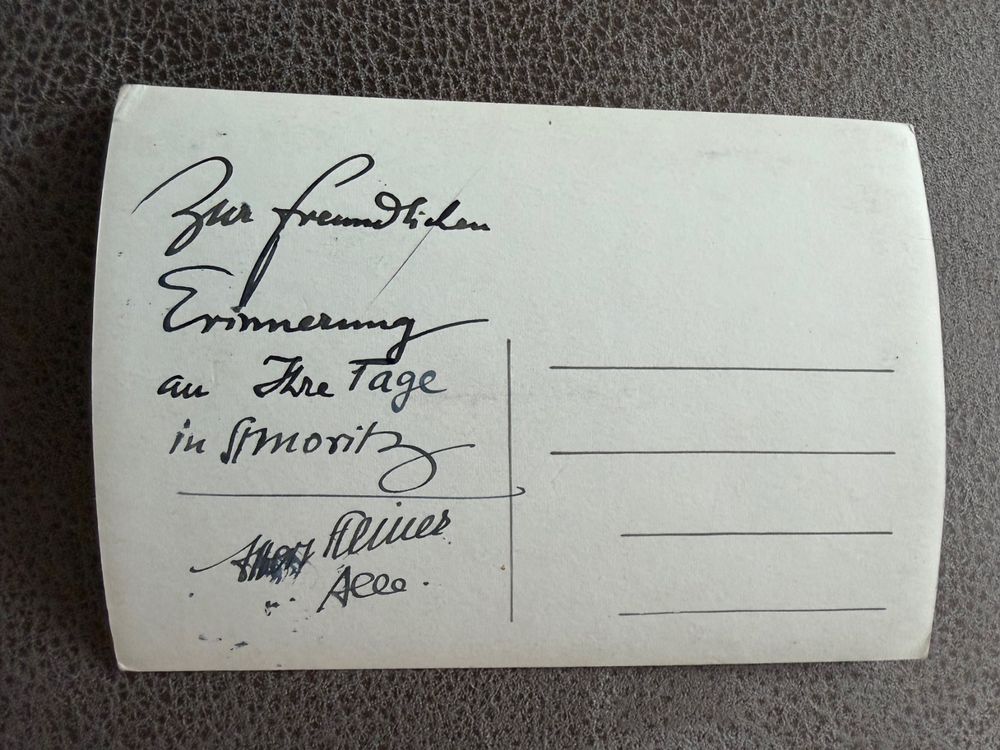 Zur freundlichen
Erinnerung
an Ihre Tage
in St Moritz